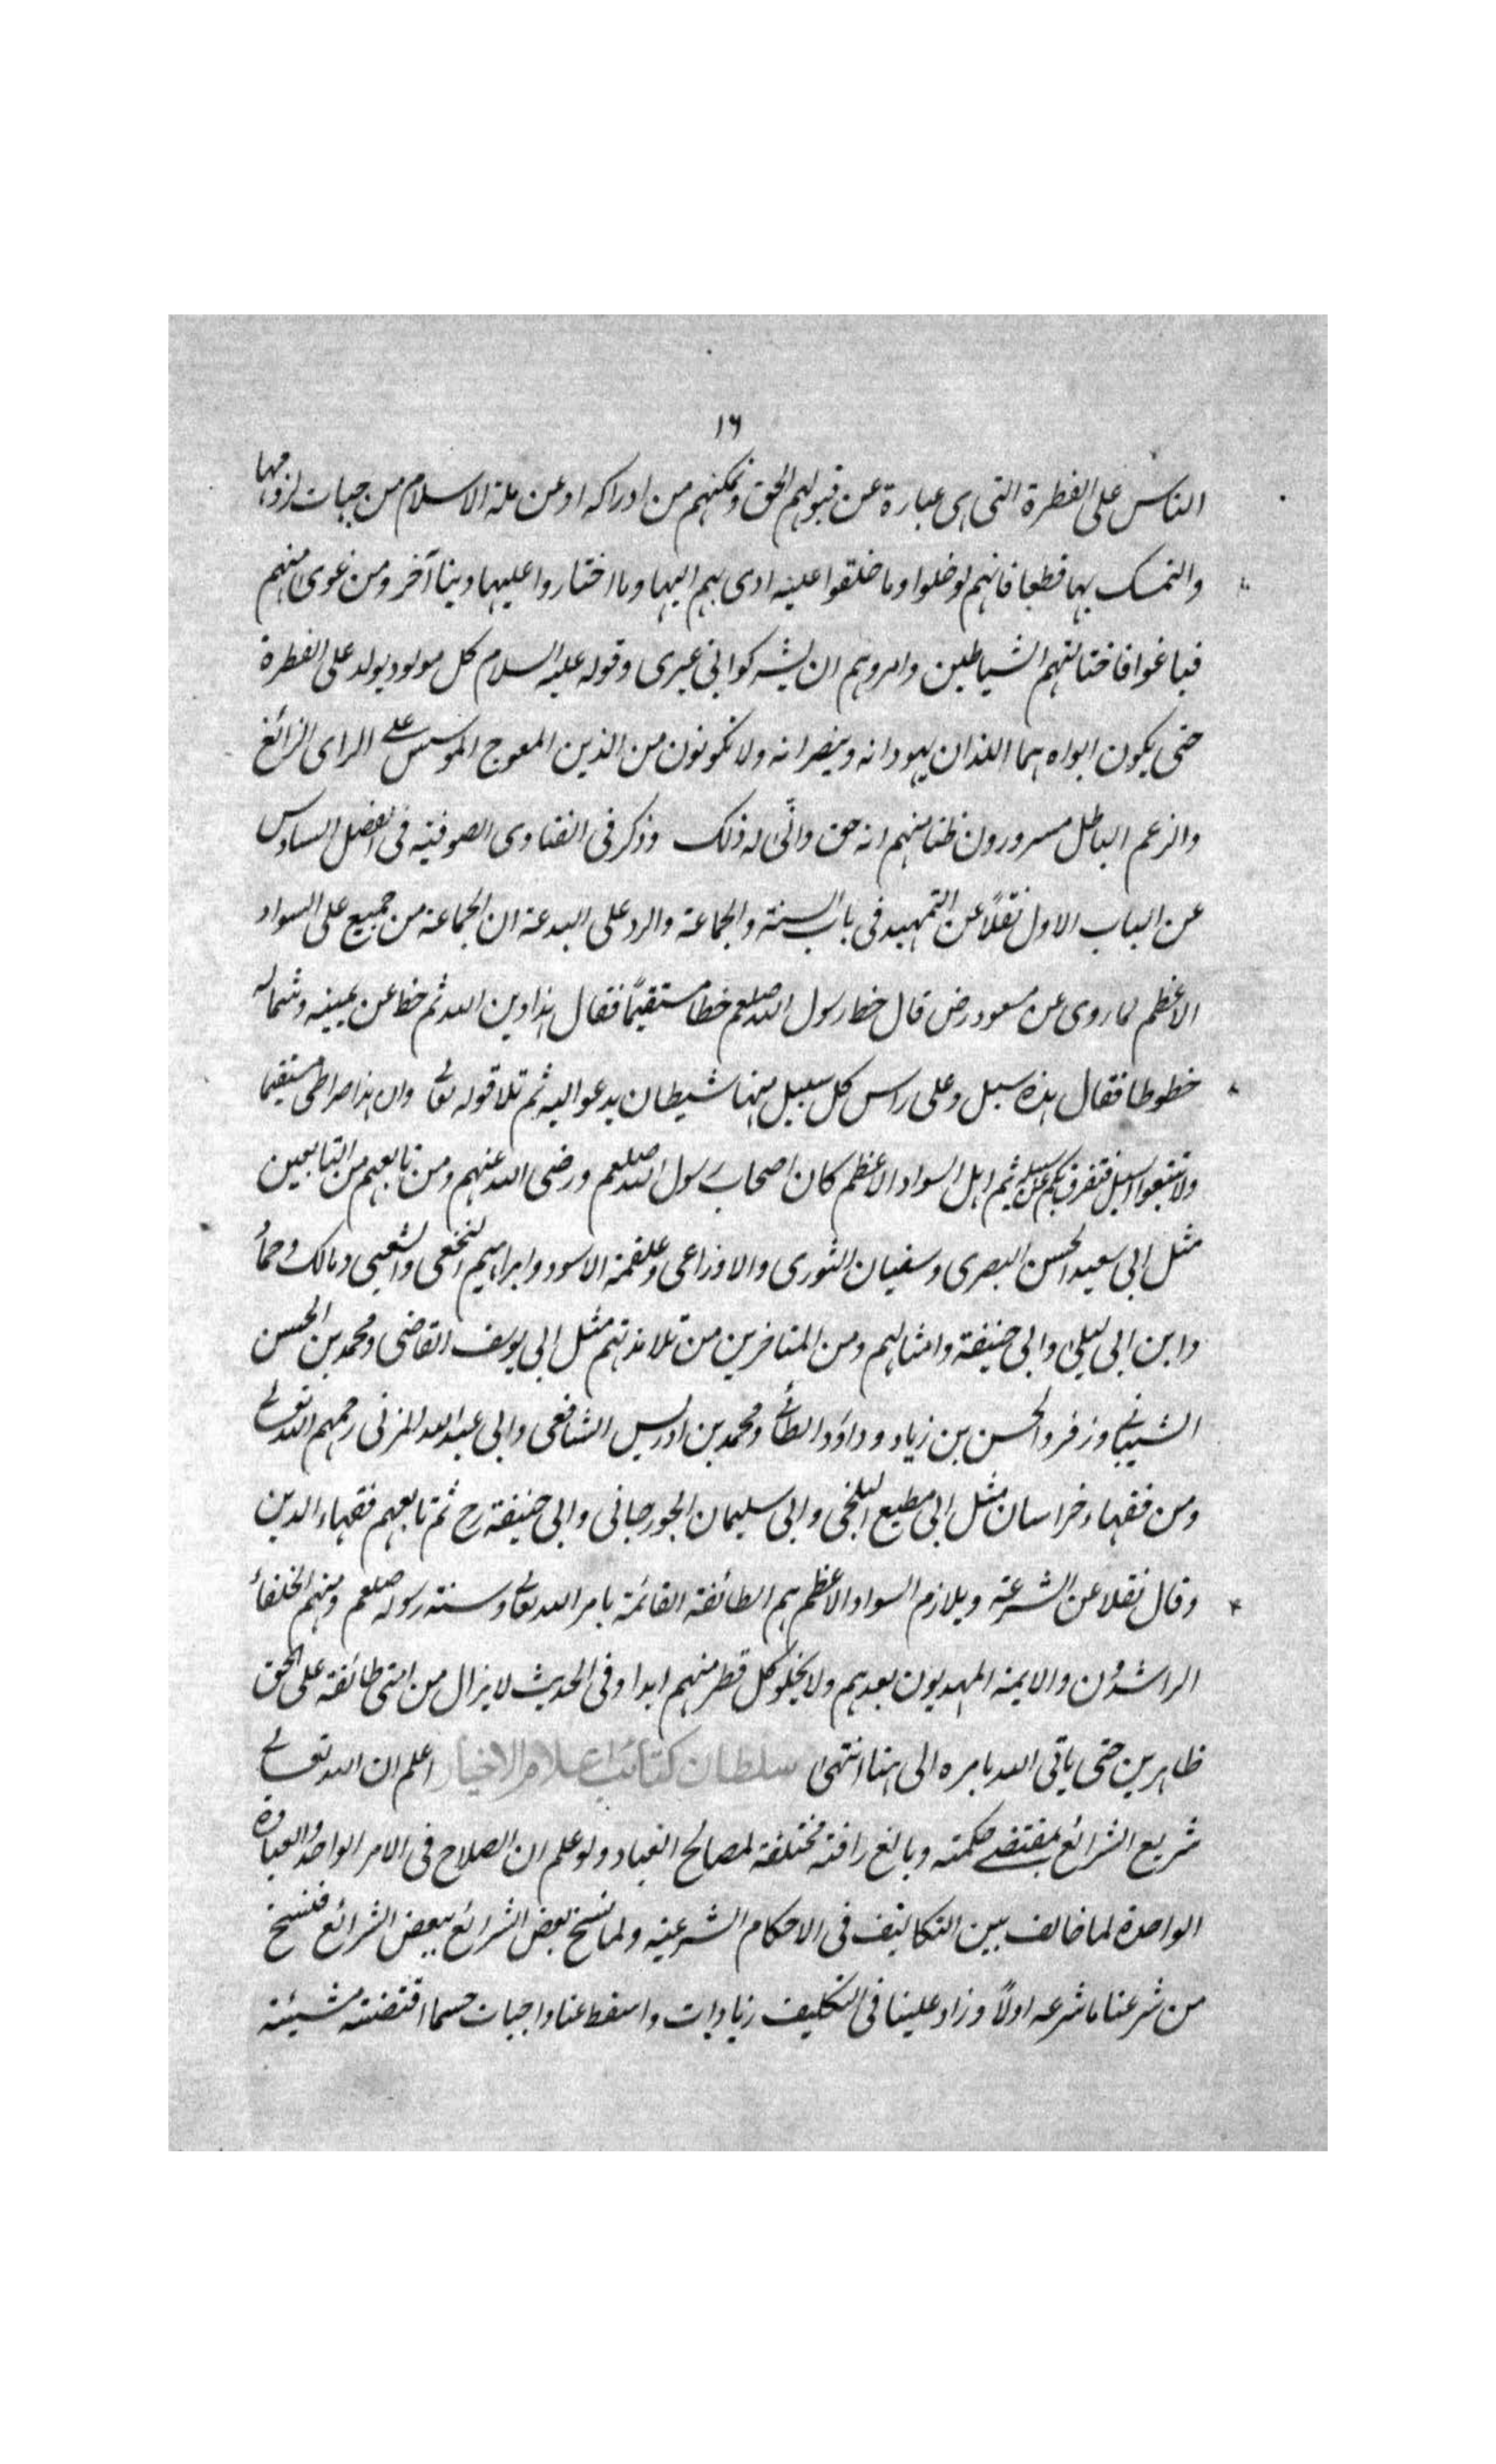 ١٦
الناس على الفطرة التى هى عبارة عن قبولهم الحق وتمكنهم من ادراكه او عن ملة الاسلام من جهات لزومها
والتمسك بها قطعا فانهم لو خلوا وما خلقوا عليه ادى بهم اليها وما اختاروا عليها دينا آخر ومن غوى منهم
فباغوا فاختالتهم الشياطين وامروهم ان يشركوا بى غيرى وقوله عليه السلام كل مولود يولد على الفطرة
حتى يكون ابواه هما اللذان يهودانه وينصرانه ولا تكونون من الذين المعوج الموسس على الراى الزائغ
والزعم الباطل مسرورون ظنا منهم انه حق وانّى له ذلك وذكر فى الفتاوى الصوفيه فى الفصل السادس
عن الباب الاول نقلاً عن التمهيد فى باب السنة والجماعة والرد على البدعة ان الجماعة من جميع على السواد
الاعظم لما روى عن مسعود رض قال خط رسول الله صلعم خطا مستقيمًا فقال هذا دين الله ثم خط عن يمينه وشماله
خطوطا فقال هذه سبل وعلى راس كل سبيل منها شيطان يدعو اليه ثم تلا قوله تعالى وان هذا صراطى مستقيما
ولا تتبعوا السبل فتفرق بكم عن سبيله ثم اهل السواد الاعظم كان اصحاب رسول الله صلعم ورضى الله عنهم ومن تابعهم من التابعين
مثل ابى سعيد الحسن البصرى وسفيان الثورى والاوزاعى وعلقمة الاسود وابراهيم النخعى والشعبى ومالك وحماد
وابن ابى ليلى وابى حنيفة وامثالهم ومن المتاخرين من تلامذتهم مثل ابى يوسف القاضى ومحمد بن الحسن
الشيبانى وزفر والحسن بن زياد وداؤد الطائى ومحمد بن ادريس الشافعى وابى عبد الله المزنى رحمهم الله تعالى
ومن فقهاء خراسان مثل ابى مطيع البلخى وابى سليمان الجورجانى وابى حنيفة رح ثم تابعهم فقهاء الدين
وقال نقلا عن الشرعة ويلازم السواد الاعظم هم الطائفة القائمة بامر الله تعالى وسنة رسوله صلعم ومنهم الخلفاء
الراشدون والايمة المهديون بعدهم ولا يخلو كل قطر منهم ابدا وفى الحديث لا يزال من امتى طائفة على الحق
ظاهرين حتى ياتى الله بامره الى هنا انتهى سلطان كتائب اعلام الاخيار اعلم ان الله تعالى
شريع الشرائع بمقتضى حكمته وبالغ رافته مختلفة لمصالح العباد ولو علم ان الصلاح فى الامر الواحد والعبادة
الواحدة لما خالف بين التكاليف فى الاحكام الشرعيه ولما نسخ بعض الشرائع ببعض الشرائع فنسخ
من شرعنا ما شرعه اولاً وزاد علينا فى التكليف زيادات واسقط عنا واجبات حسما اقتضته مشيئة